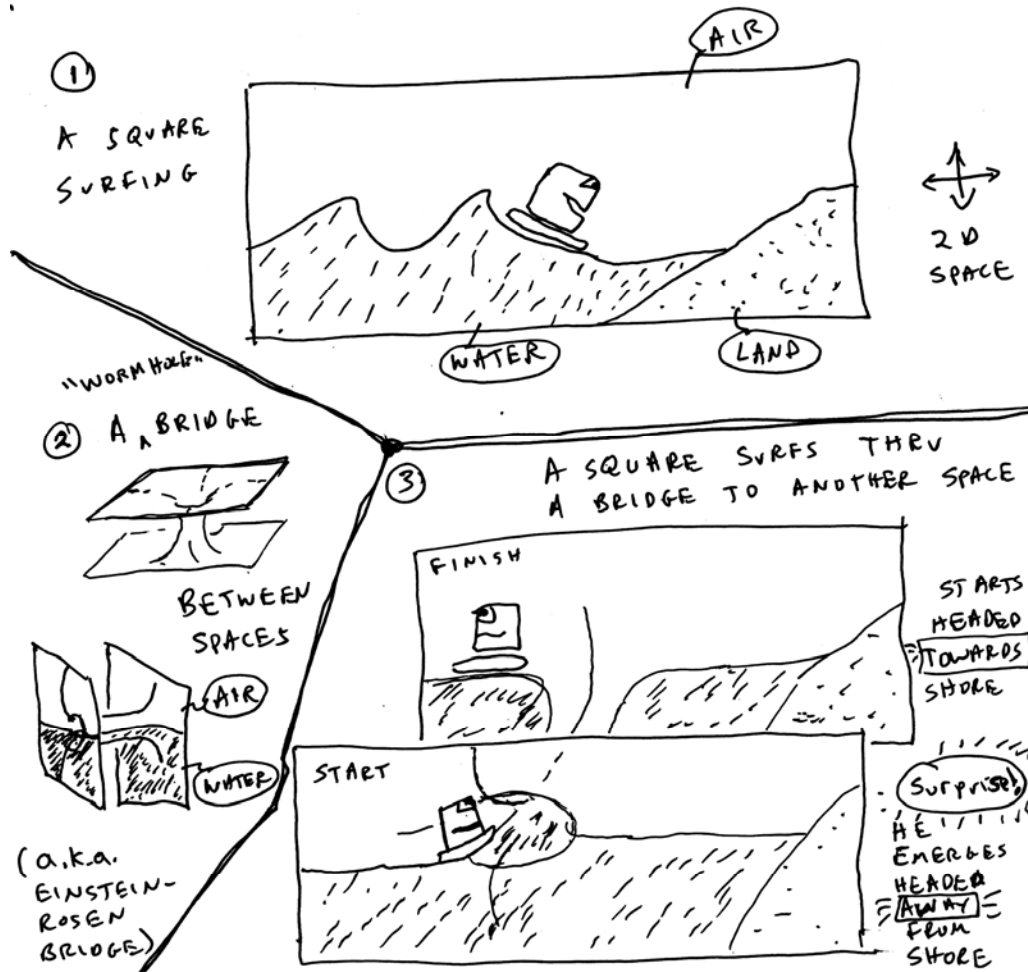 1
A SQUARE
SURFING
AIR
WATER
LAND
2D
SPACE
2
"WORMHOLE"
A ^ BRIDGE
BETWEEN
SPACES
AIR
WATER
(a.k.a.
EINSTEIN-
ROSEN
BRIDGE)
3
A SQUARE SURFS THRU
A BRIDGE TO ANOTHER SPACE
FINISH
START
STARTS
HEADED
TOWARDS
SHORE
Surprise!
HE
EMERGES
HEADED
AWAY
FROM
SHORE